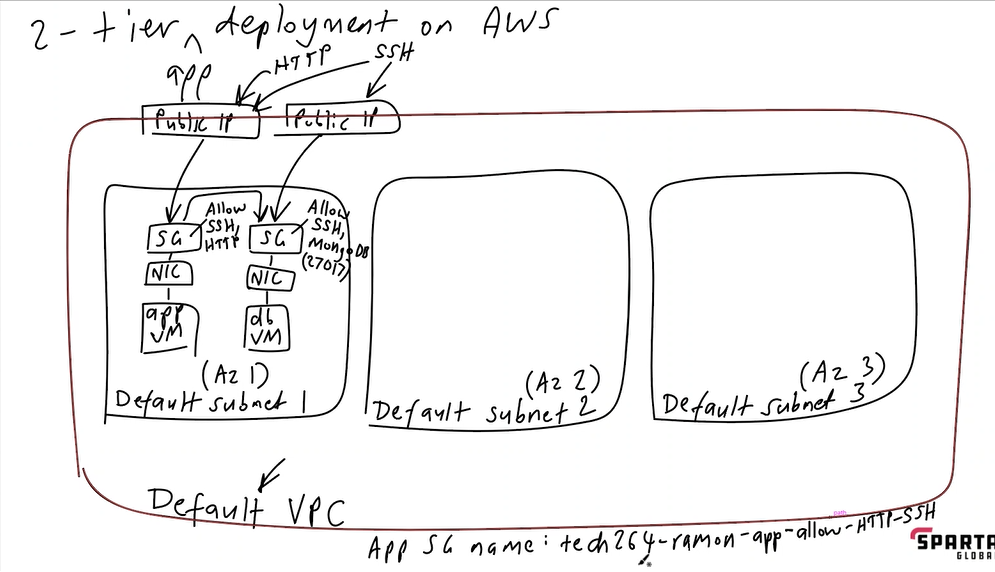 2-tier deployment on AWS
app
HTTP
SSH
Public IP
Public IP
SG
Allow
SSH,
HTTP
SG
Allow
SSH,
MongoDB
(27017)
NIC
NIC
app
VM
db
VM
(AZ 1)
Default subnet 1
(AZ 2)
Default subnet 2
(AZ 3)
Default subnet 3
Default VPC
App SG name: tech264-ramon-app-allow-HTTP-SSH
SPARTA
GLOBAL